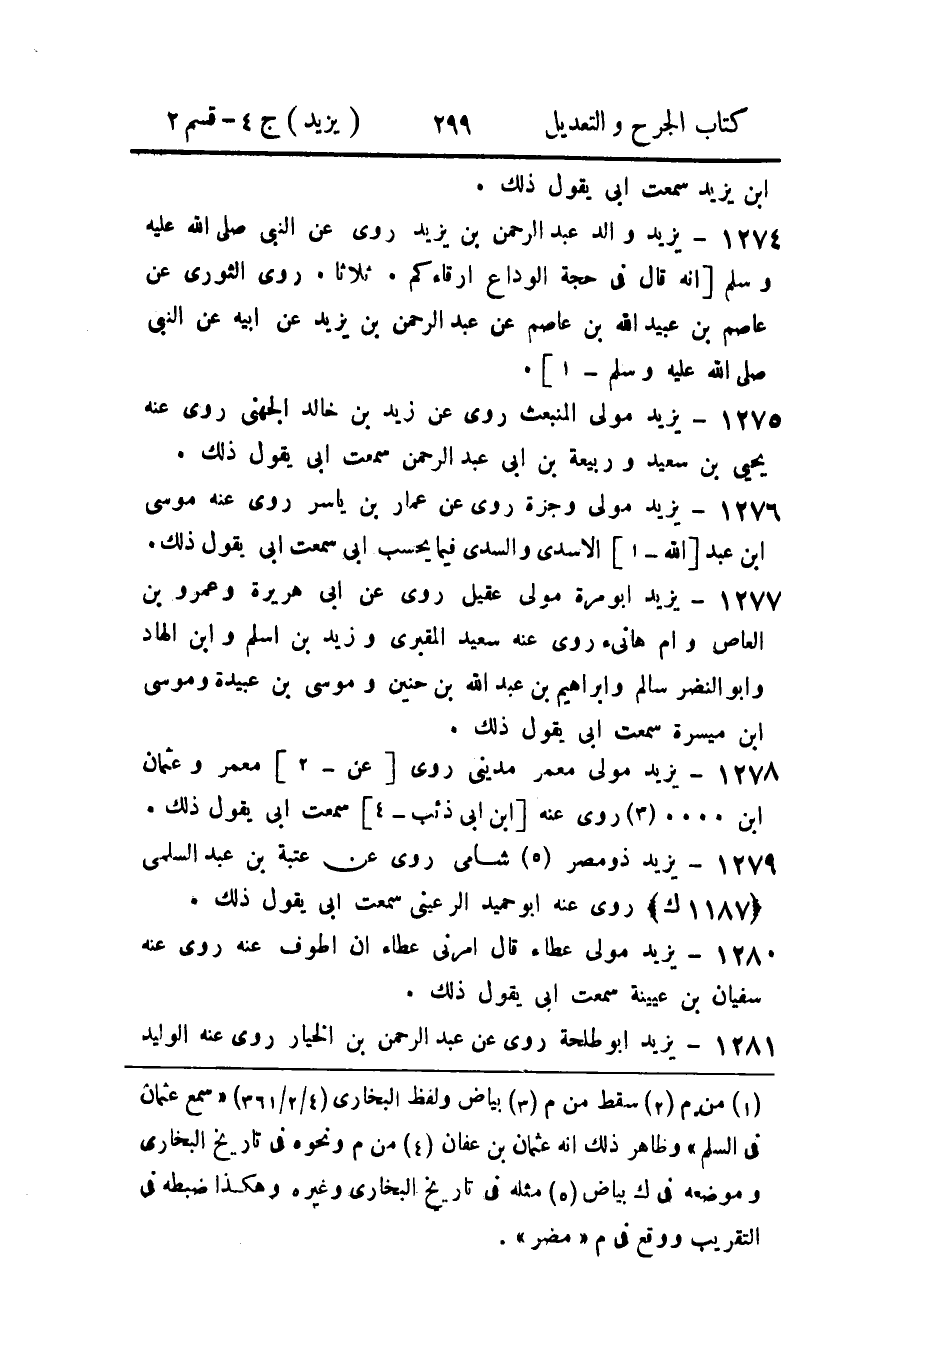 كتاب الجرح و التعديل ٢٩٩ ( يزيد ) ج ٤ – قسم ٢
ابن يزيد سمعت ابى يقول ذلك .
١٢٧٤ – يزيد و الد عبد الرحمن بن يزيد روى عن النبى صلى الله عليه
و سلم [ انه قال فى حجة الوداع ارقاءكم . ثلاثا . روى الثورى عن
عاصم بن عبيد الله بن عاصم عن عبد الرحمن بن يزيد عن ابيه عن النبى
صلى الله عليه و سلم – ١ ] .
١٢٧٥ – يزيد مولى المنبعث روى عن زيد بن خالد الجهنى روى عنه
يحيى بن سعيد و ربيعة بن ابى عبد الرحمن سمعت ابى يقول ذلك .
١٢٧٦ – يزيد مولى وجزة روى عن عمار بن ياسر روى عنه موسى
ابن عبد [ الله – ١ ] الاسدى والسدى فيما يحسب ابى سمعت ابى يقول ذلك .
١٢٧٧ – يزيد ابو مرة مولى عقيل روى عن ابى هريرة وعمرو بن
العاص و ام هانىء روى عنه سعيد المقبرى و زيد بن اسلم و ابن الهاد
وابو النضر سالم وابراهيم بن عبد الله بن حنين و موسى بن عبيدة وموسى
ابن ميسرة سمعت ابى يقول ذلك .
١٢٧٨ – يزيد مولى معمر مدينى روى [ عن – ٢ ] معمر و عثمان
ابن .... (٣) روى عنه [ ابن ابى ذئب – ٤ ] سمعت ابى يقول ذلك .
١٢٧٩ – يزيد ذومصر (٥) شامى روى عن عتبة بن عبد السلمى
﴿١١٨٧ ك﴾ روى عنه ابو حميد الرعينى سمعت ابى يقول ذلك .
١٢٨٠ – يزيد مولى عطاء قال امرنى عطاء ان اطوف عنه روى عنه
سفيان بن عيينة سمعت ابى يقول ذلك .
١٢٨١ – يزيد ابو طلحة روى عن عبد الرحمن بن الخيار روى عنه الوليد
(١) من م (٢) سقط من م (٣) بياض ولفظ البخارى (٣٦١/٢/٤) « سمع عثمان
فى السلم » وظاهر ذلك انه عثمان بن عفان (٤) من م ونحوه فى تاريخ البخارى
و موضعه فى ك بياض (٥) مثله فى تاريخ البخارى وغيره وهكذا ضبطه فى
التقريب ووقع فى م « مضر » .